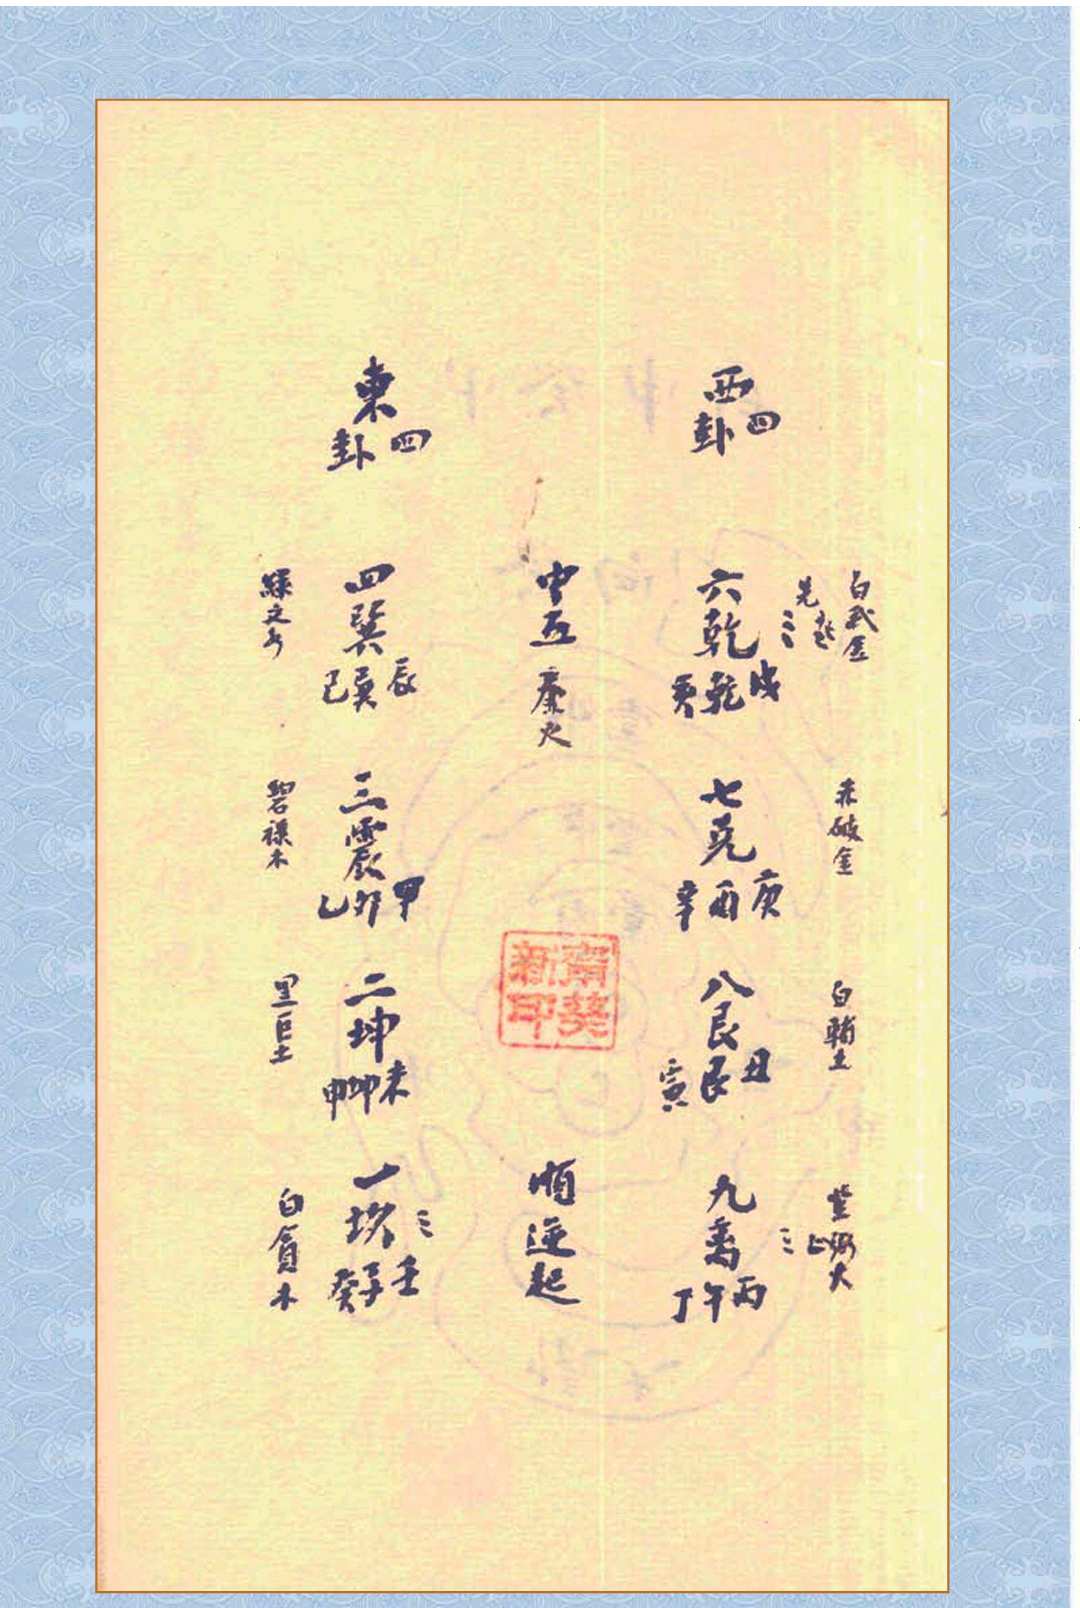 西四卦
六乾
戌乾亥
白武金
七兑
庚酉辛
赤破金
八艮
丑艮寅
白輔土
九离
丙午丁
紫弼火
中五
廉火
順逆起
東四卦
四巽
辰巽巳
綠文
三震
甲卯乙
碧祿木
二坤
未坤申
黑巨土
一坎
壬子癸
白貪木
齋葵
新印